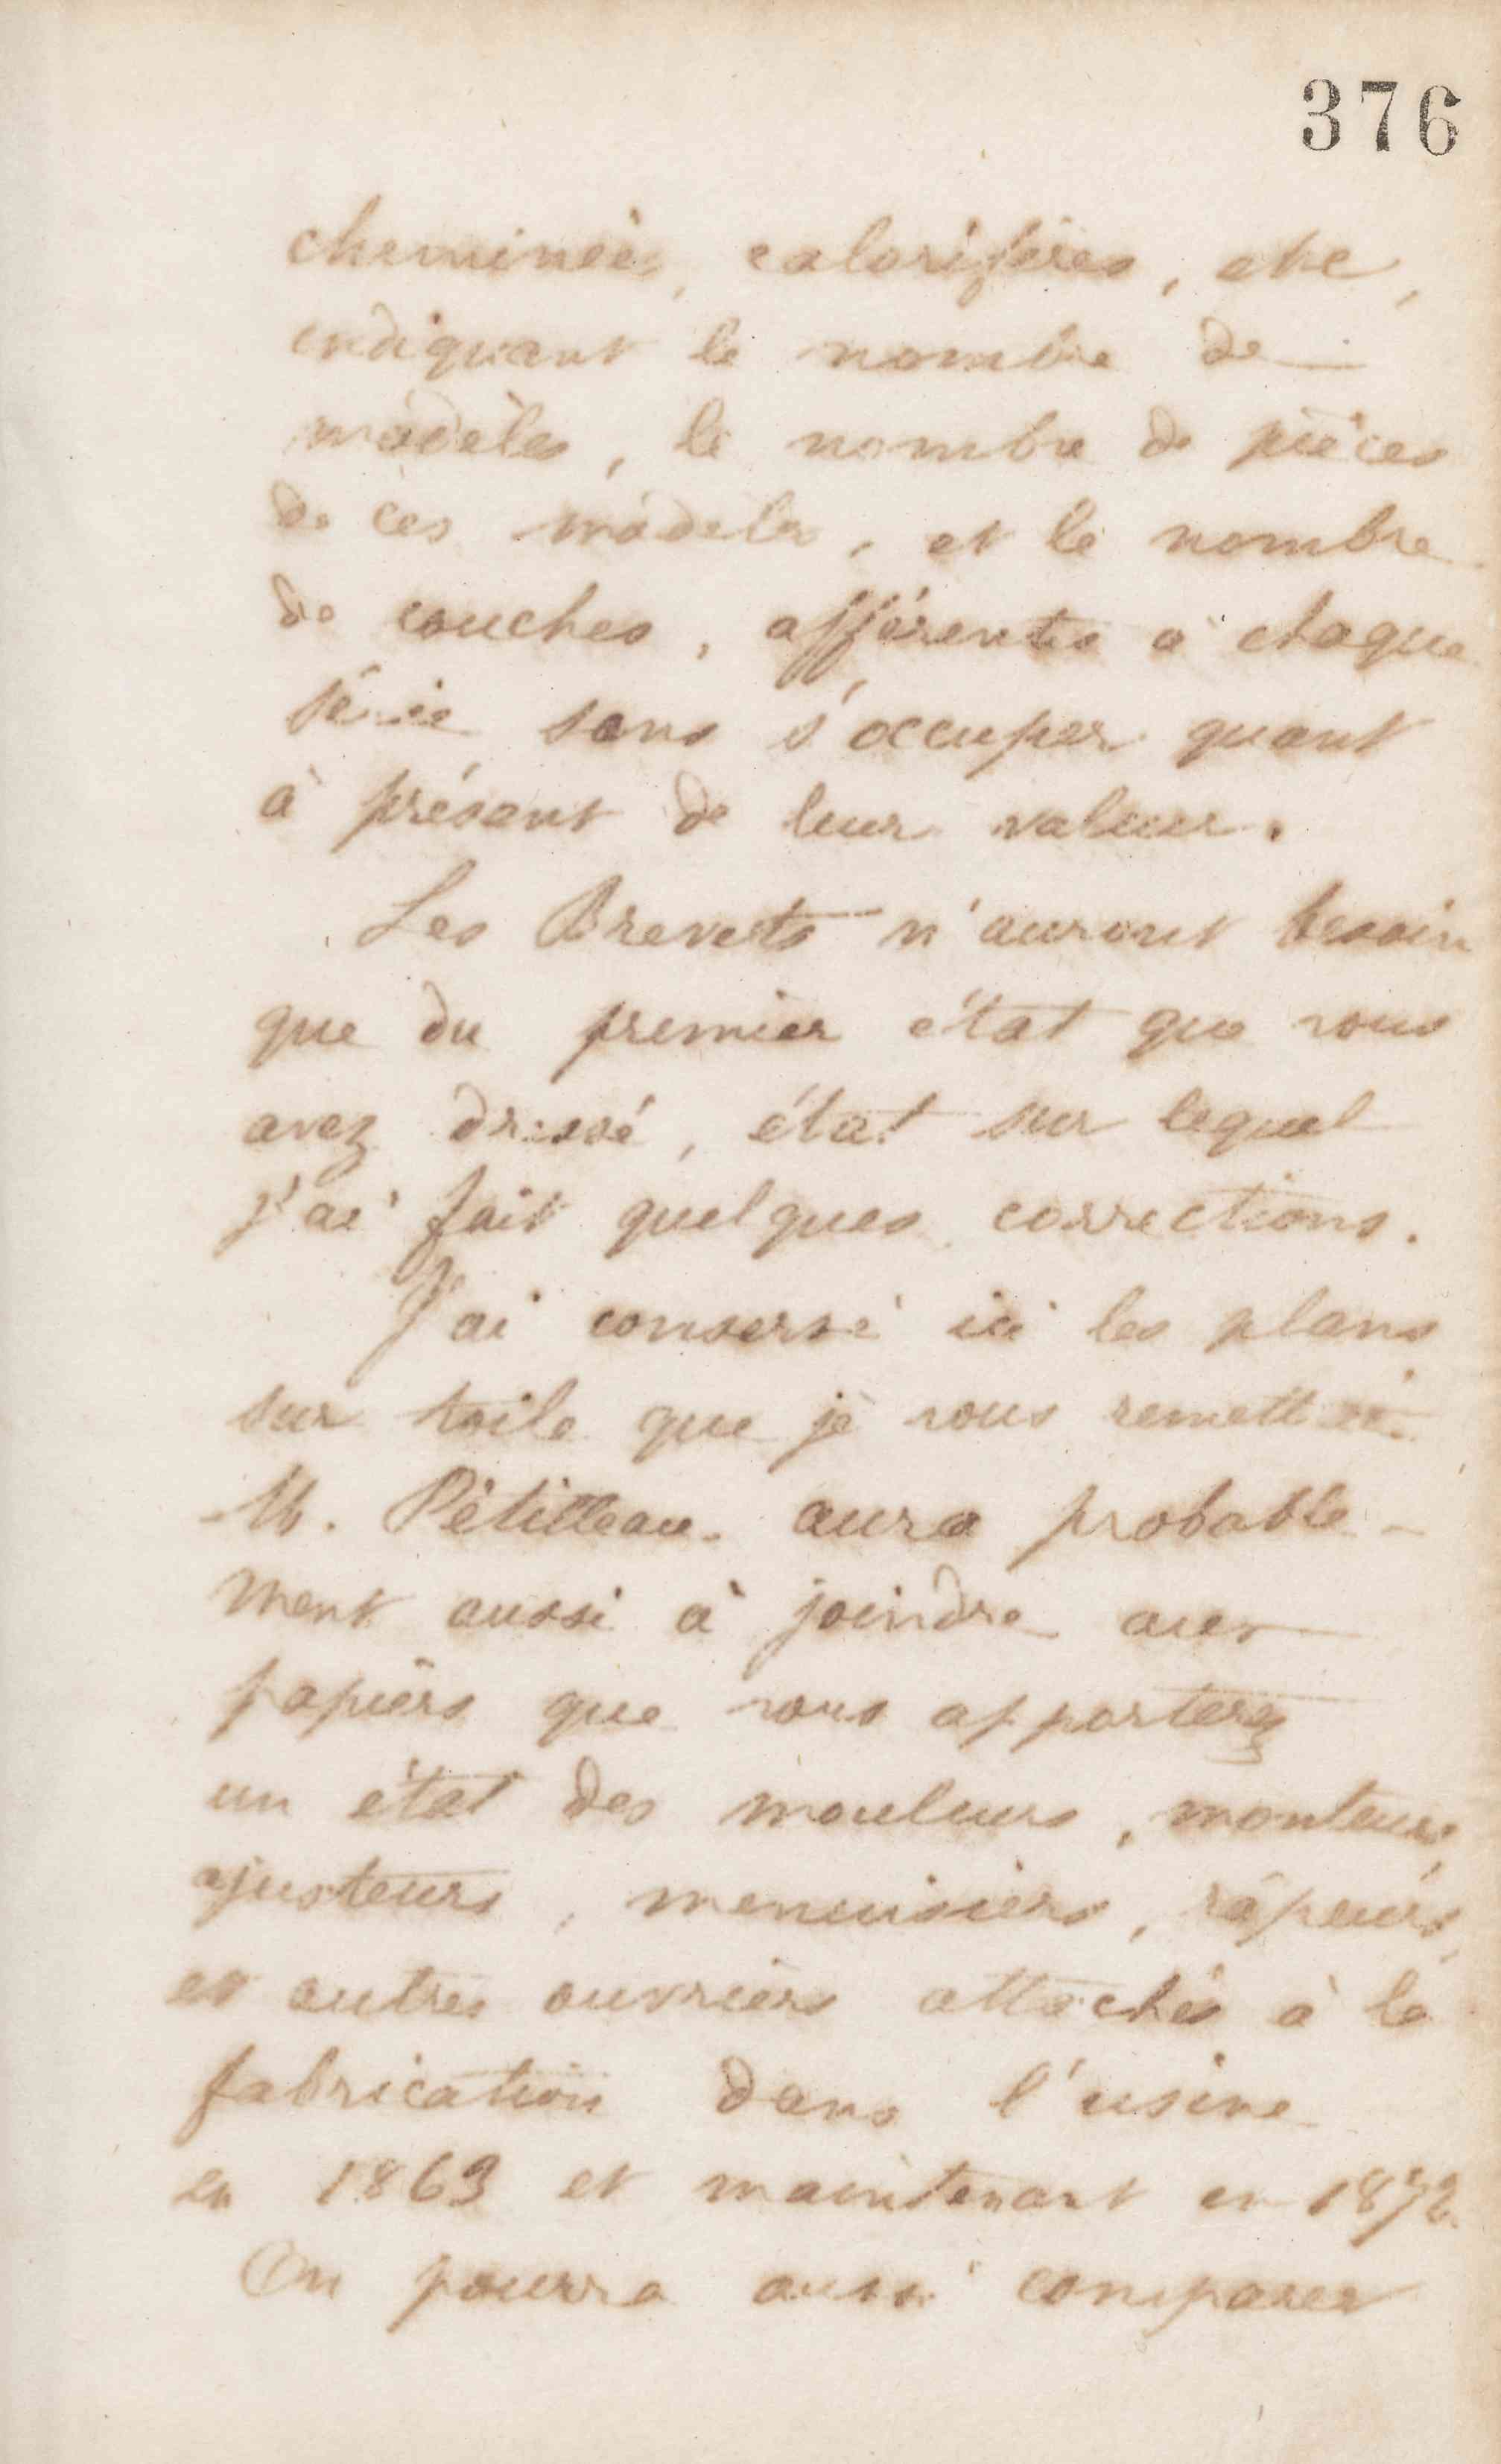 376
cheminées, calorifères, etc,
indiquant le nombre de
modèles, le nombre de pièces
de ces modèles, et le nombre
de couches, afférentes à chaque
série sans s'occuper quant
à présent de leur valeur.
Les Brevets n'auront besoin
que du premier état que vous
avez dressé, état sur lequel
j'ai fait quelques corrections.
J'ai conservé ici les plans
sur toile que je vous remettrai.
M. Pétilleau aura probable-
ment aussi à joindre aux
papiers que vous apporterez
un état des mouleurs, monteurs,
ajusteurs, menuisiers, râpeurs,
et autres ouvriers attachés à la
fabrication dans l'usine
en 1869 et maintenant en 1872.
On pourra aussi comparer